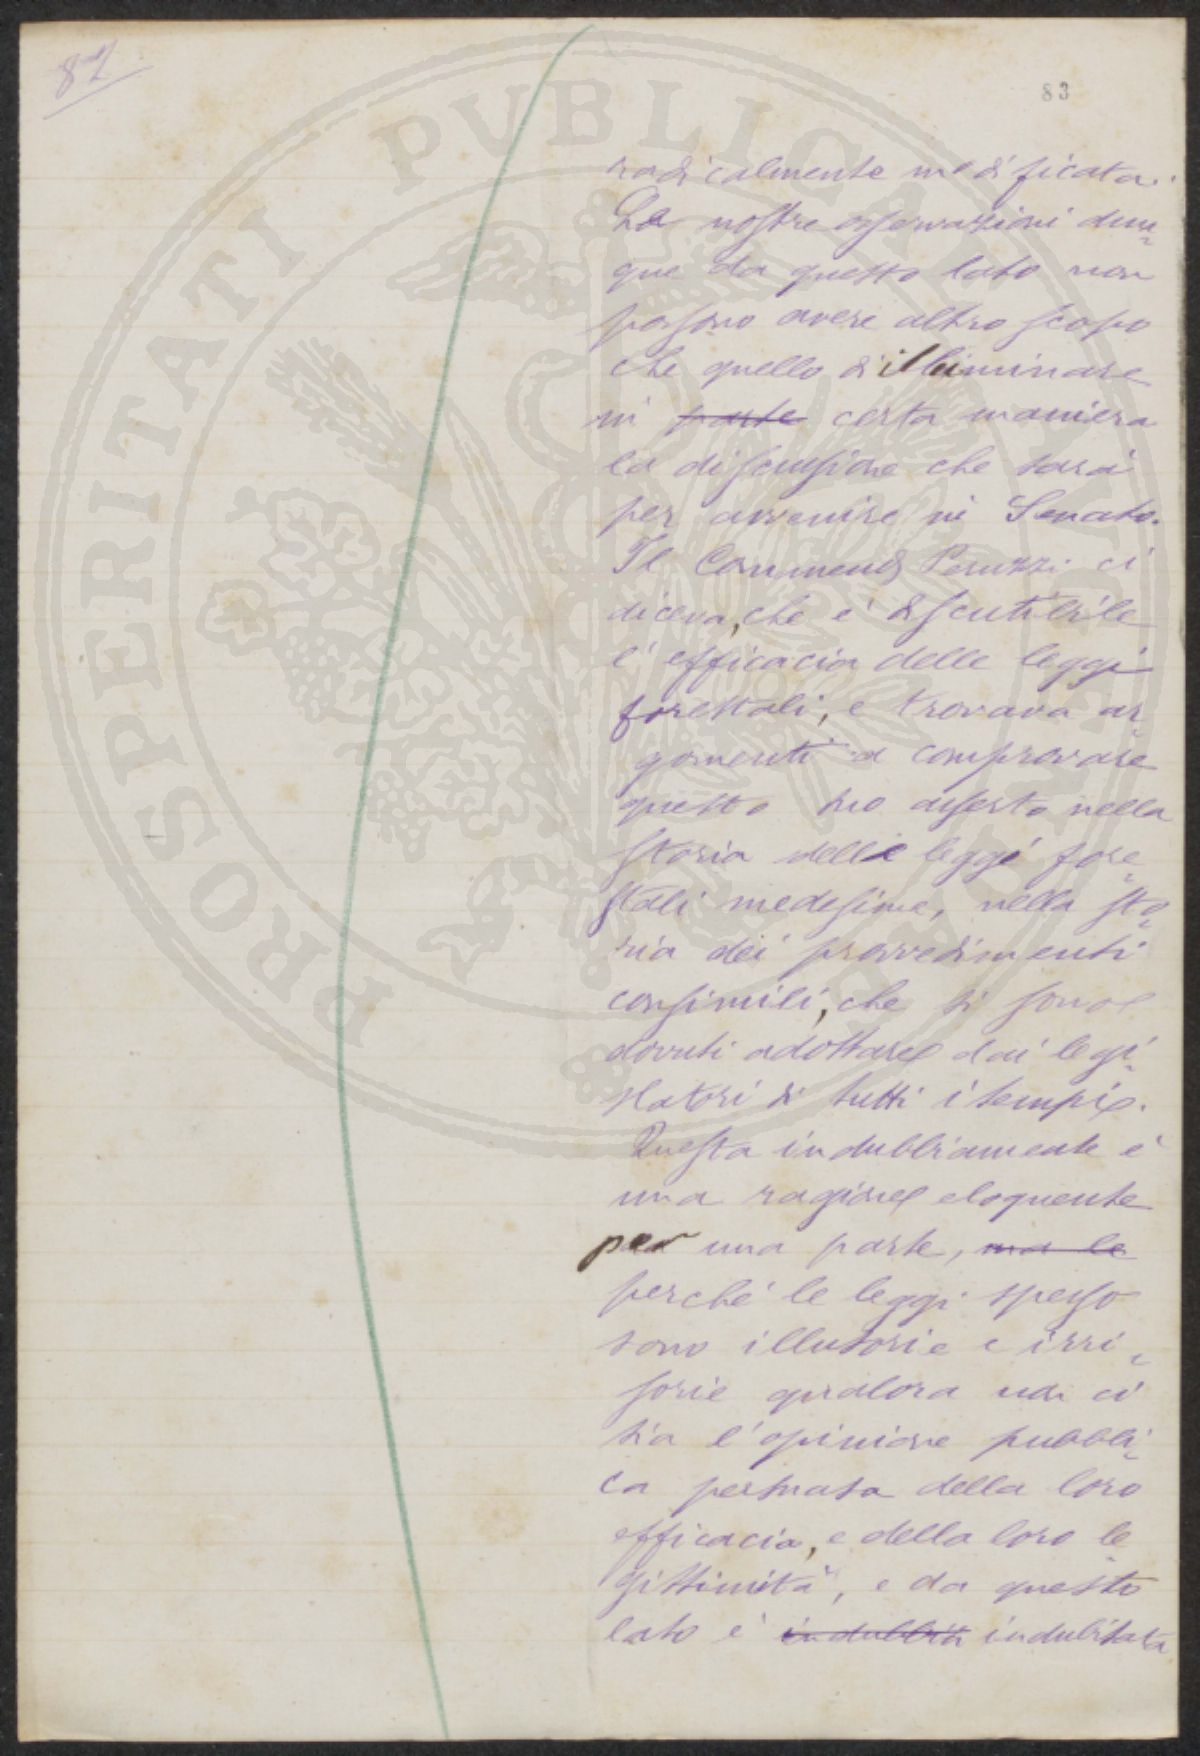 87
83
radicalmente modificata.
Le nostre osservazioni dun-
que da questo lato non
possono avere altro scopo
che quello di illuminare
in ~~parte~~ certa maniera
la discussione che sarà
per avvenire in Senato.
Il Commend Peruzzi ci
diceva, che è discutibile
l'efficacia delle leggi
forestali, e trovava ar-
gomenti a comprovare
questo suo asserto nella
storia delle leggi fore-
stali medesime, nella sto-
ria dei provvedimenti
consimili, che si sono
dovuti adottare dai legi-
slatori di tutti i tempi.
Questa indubbiamente è
una ragione eloquente
per una parte, ~~ma le~~
perché le leggi spesso
sono illusorie e irri-
sorie qualora non ci
sia l'opinione pubbli-
ca persuasa della loro
efficacia, e della loro le-
gittimità, e da questo
lato è ~~indubbia~~ indubitata
PROSPERITATI PUBLICAE